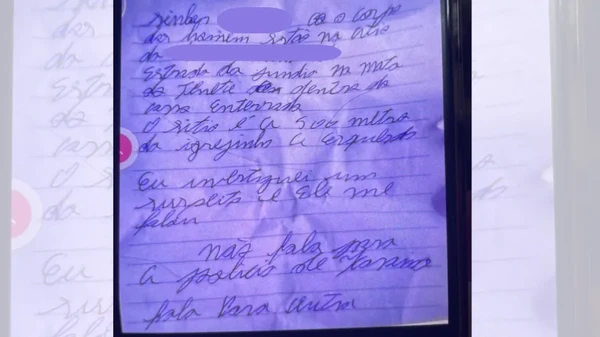 senhor co o corpo
dos homem estão na
da
Estrada da na mata
da dentra da
casa Enterrada
O sitio é a 500 metro
da igrejinha a Esquerda
Eu investiguei um
suspeito e Ele me
falou
não fala para
a policia de
fala Para outra